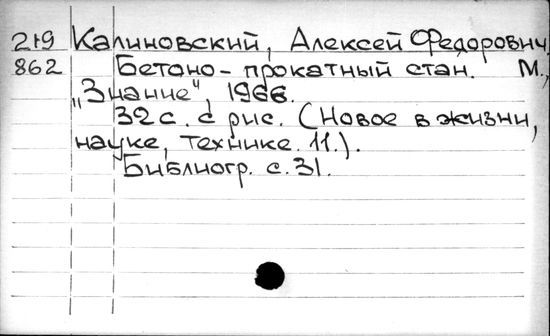 219 Калиновский, Алексей Федорович.
862 Бетоно-прокатный стан. М.,
„Знание“, 1966.
32 с. с рис. (Новое в жизни,
науке, технике. 11.).
Библиогр. с. 31.